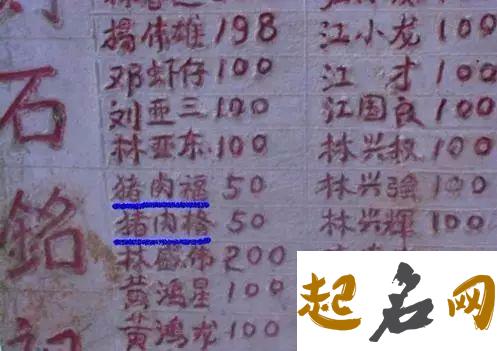 楊伟雄 198 江小龙 100
邓虾仔 100 江才 100
刘亚三 100 江国良 100
林亚东 100 林兴权 100
猪肉福 50 林兴強 100
猪肉格 50 林兴辉 100
林盛伟 200
黄鸿星 100
黄鸿龙 100
石銘
起名网